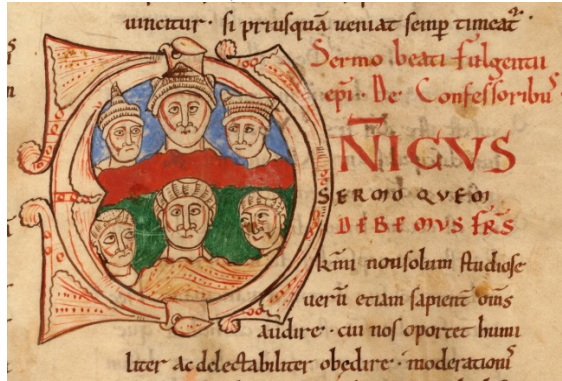 uincitur · si priusquā ueniat semp timeat᷒.
Sermo beati fulgentii
epi. De Confessoribus
DNICVS
SERMO QVEM
DEBEMVS FRS
kmi non solum studiose
uerū etiam sapient oms
audire · cui nos oportet humi
liter ac delectabiliter obedire · moderationis